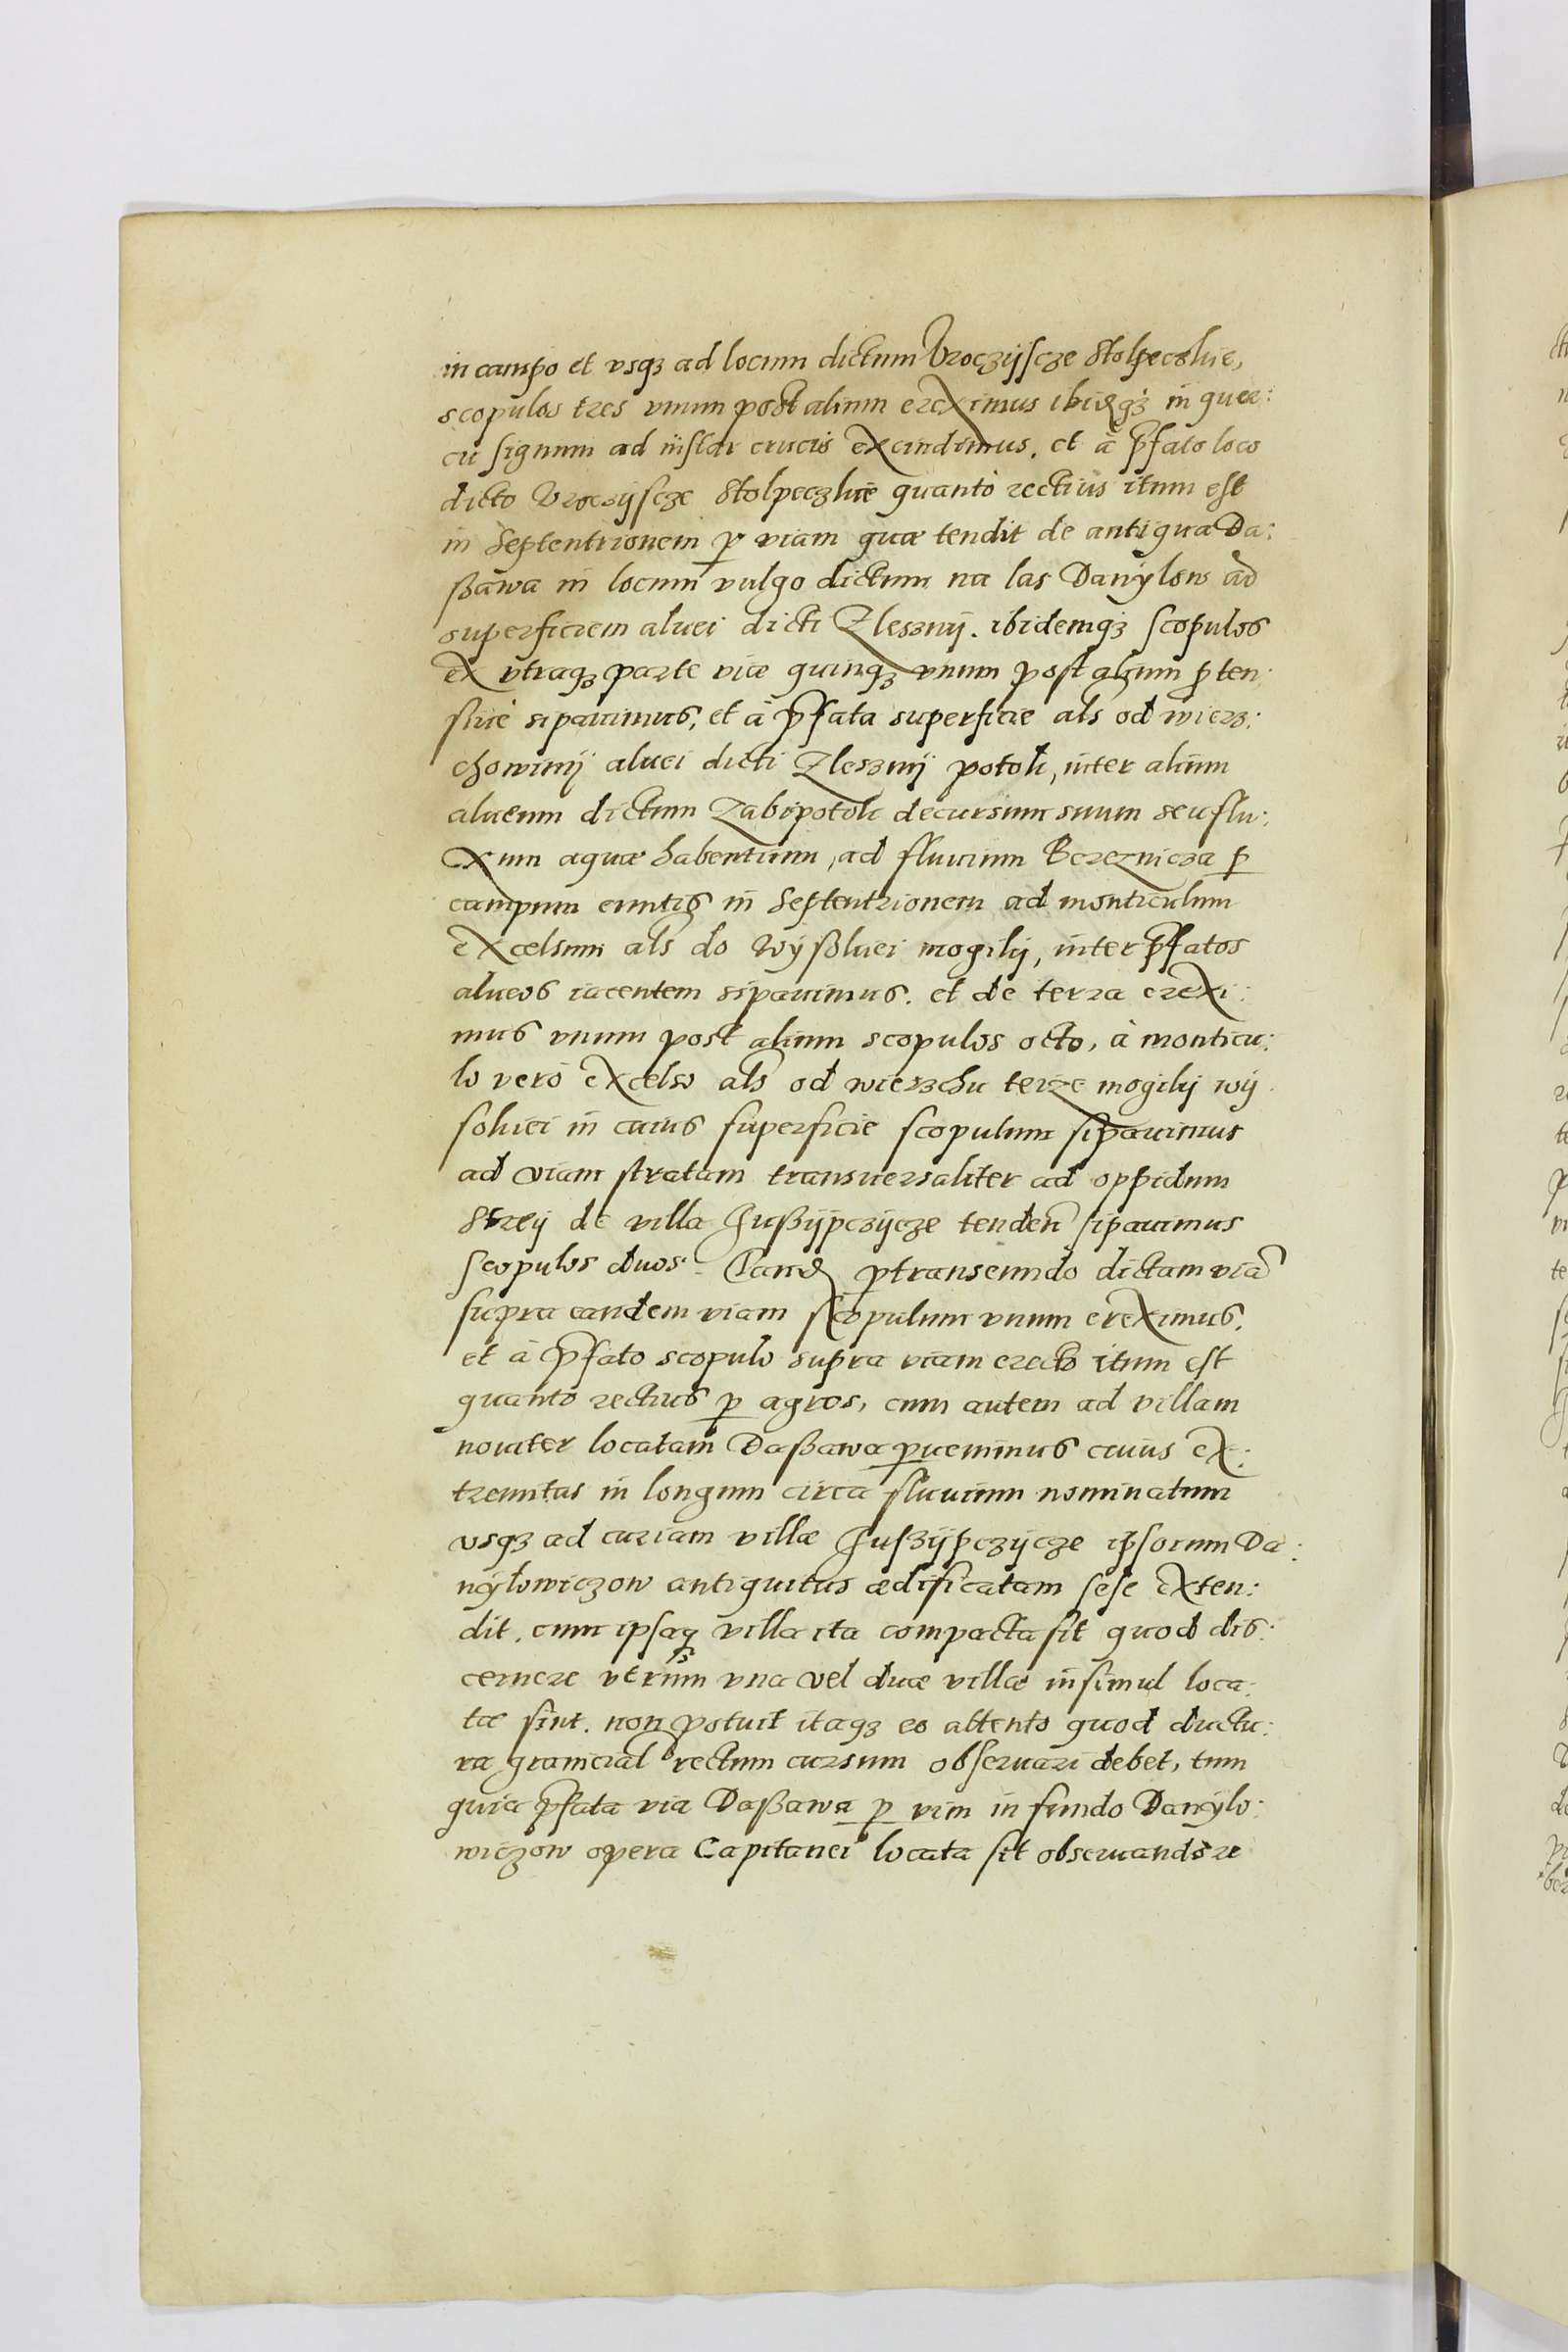 in campo et vsqȝ ad locum dictum Vroczijscze Stolpeczkie,
scopulos tres vnum post alium ereximus ibidqȝ in quer:
cu signum ad instar crucis excindimus. et à p̄fato loco
dicto Vroczijscze Stolpeczkie quantò rectius itum est
in Septentrionem ꝑ viam quæ tendit de antiqua Da:
ßawa in locum vulgo dictum na las Danÿlow ad
superficiem aluei dicti Zlesznij. ibidemqȝ scopulos
ex vtraqȝ parte viæ quinqȝ vnum post alium ꝓten:
siue sipauimus, et à p̄fata superficie als od wierz:
chowinij aluei dicti Zlesznij potoki, inter alium
alueum dictum Zabipotok decursum suum seu flu:
xum aquæ habentium, ad fluuium Bereznicza ꝑ
campum euntis in Septentrionem ad monticulum
excelsum als do wijßokiei mogilij, inter p̄fatos
alueos iacentem sipauimus. et de terra erexi:
mus vnum post alium scopulos octo, à monticu:
lo verò excelso als od wierzchu teize mogilij wij
sokiei in cuius superficie scopulum sipauimus
ad viam stratam transuersaliter ad oppidum
Strij de villa Jußijpczijcze tendeñ sipauimus
scopulos duos. Tand ꝑtranseundo dictam viã
supra eandem viam scopulum vnum ereximus.
et à p̄fato scopulo supra viam erecto itum est
quanto rectius ꝑ agros, cum autem ad villam
nouiter locatam Daßawa ꝑuenimus cuius ex:
tremitas in longum circa fluuium nominatum
vsqȝ ad curiam villæ Jußijpczijcze ipsorum Da:
nÿlowiczow antiquitus ædificatam sese exten:
dit. cum ipsaq villa ita compacta sit quod dis:
cernere vtrum vna vel duæ villæ insimul loca:
tæ sint. non potuit itaqȝ eo attento quod ductu:
ra granicial rectum cursum obseruari debet, tum
quia p̄fata via Daßawa ꝑ vim in fundo Danÿlo:
wiczow opera Capitanei locata sit obseruando re